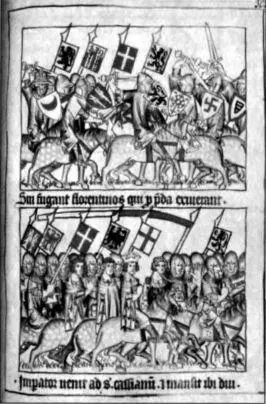 Sui fugant florentinos qui p pda exiverant.
Imperator venit ad s. cassianū. ⁊ mansit ibi diu.